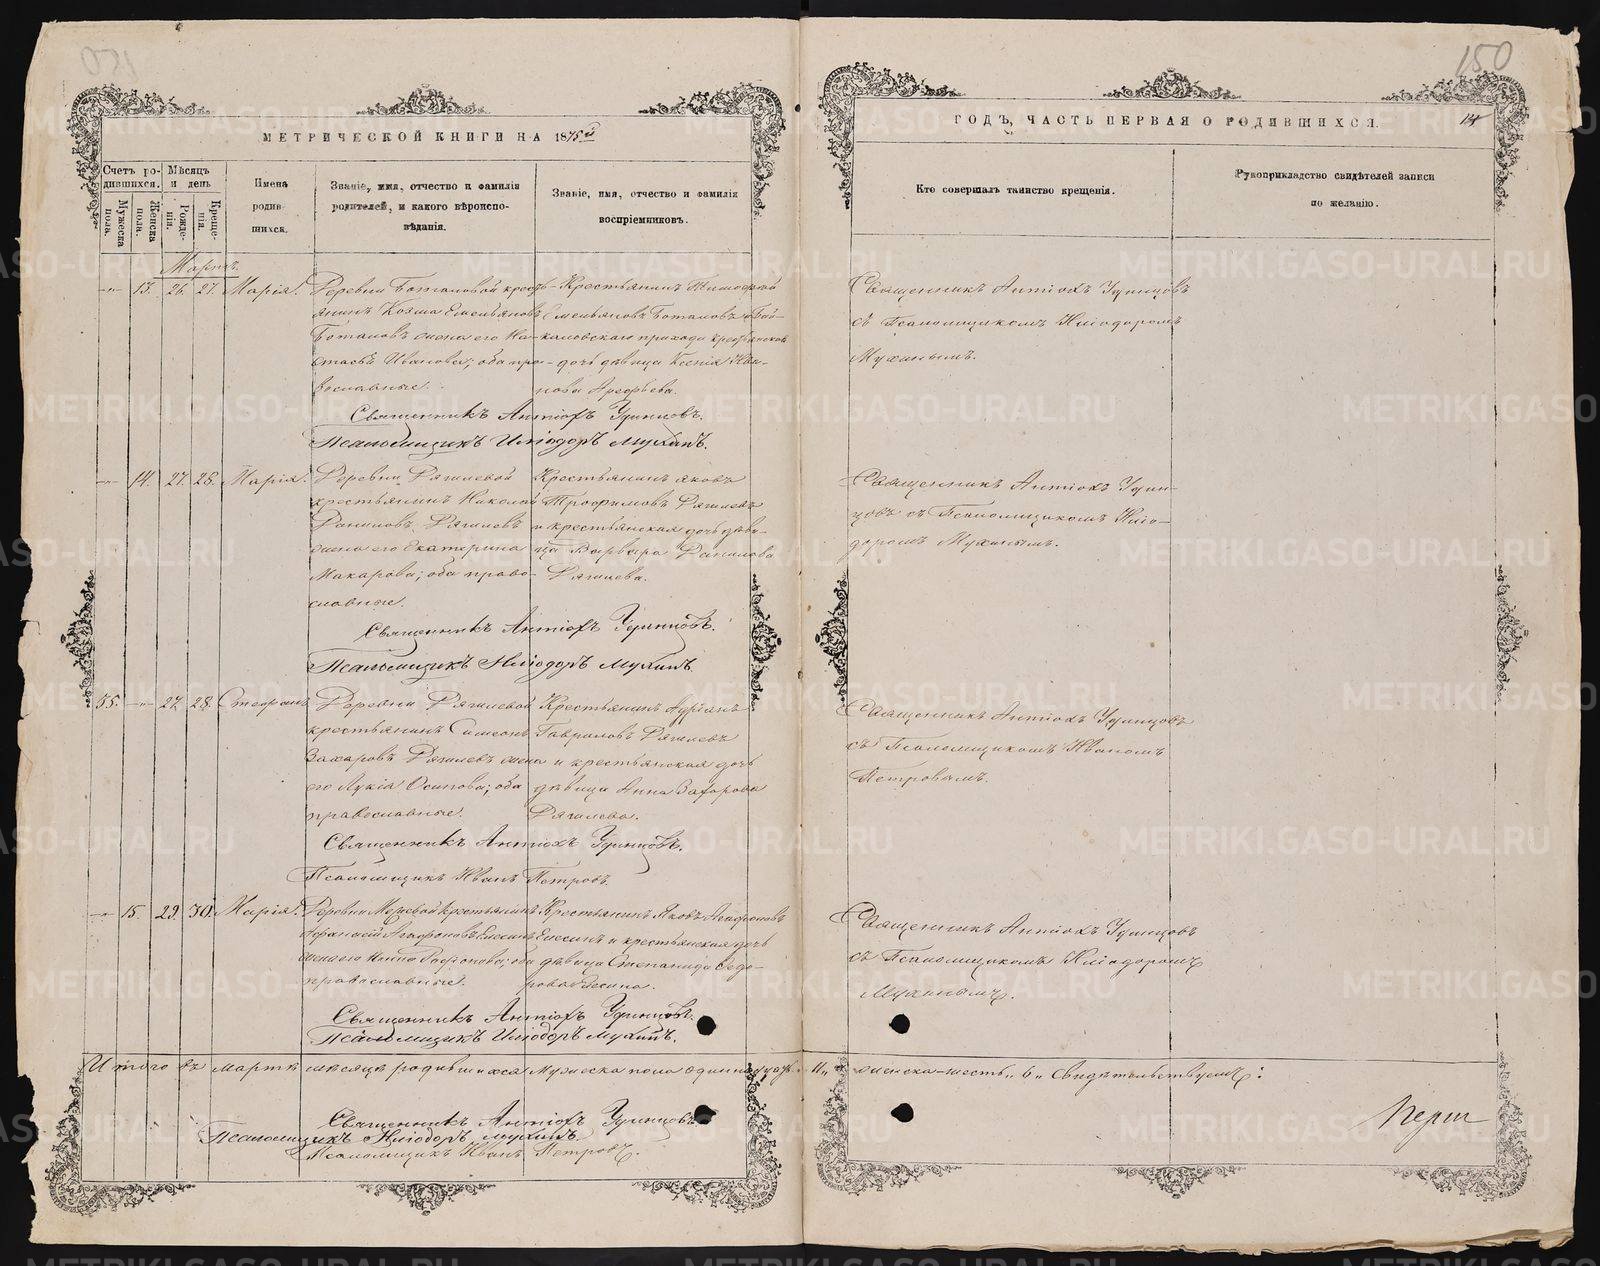 150
МЕТРИЧЕСКОЙ КНИГИ НА 1875й
ГОДЪ, ЧАСТЬ ПЕРВАЯ О РОДИВШИХСЯ.
Счетъ ро-
дившихся.
Мужеска
пола.
Женска
пола.
Мѣсяцъ
и день
Рожде-
нія.
Креще-
нія.
Имена
родив-
шихся.
Званіе, имя, отчество и фамилія
родителей, и какого вѣроиспо-
вѣданія.
Званіе, имя, отчество и фамилія
воспріемниковъ.
Кто совершалъ таинство крещенія.
Рукоприкладство свидѣтелей записи
по желанію.
Мартъ.
13. 26. 27. Марія.
Деревни Боталовой крестъ-
янинъ Козма Емельяновъ
Ботановъ жена его На-
стасья Иванова; оба пра-
вославные.
Крестьянинъ Тимофей
Емельяновъ Боталовъ
прихода крестьянская
дочь дѣвица Ксенія Ива-
нова Арефьева.
Священникъ Антіохъ Удинцовъ
съ Псаломщикомъ Иліодоромъ
Мухинымъ.
Священникъ Антіохъ Удинцовъ.
Псаломщикъ Иліодоръ Мухинъ.
14. 27. 28. Марія.
Деревни Рягилевой
крестьянинъ Николай
Даниловъ Рягилевъ
жена его Екатерина
Макарова; оба право-
славные.
Крестьянинъ Яковъ
Трофимовъ Рягилевъ
и крестьянская дочь дѣви-
ца Варвара Данилова
Рягилева.
Священникъ Антіохъ Удин-
цовъ съ Псаломщикомъ Иліо-
доромъ Мухинымъ.
Священникъ Антіохъ Удинцовъ.
Псаломщикъ Иліодоръ Мухинъ.
35. 27. 28. Стефанъ
Деревни Рягилевой
крестьянинъ Симеонъ
Захаровъ Рягилевъ жена
его Лукія Осипова; оба
православные.
Крестьянинъ Адріанъ
Гавриловъ Рягилевъ
и крестьянская дочь
дѣвица Анна Захарова
Рягилева.
Священникъ Антіохъ Удинцовъ
съ Псаломщикомъ Иваномъ
Петровымъ.
Священникъ Антіохъ Удинцовъ.
Псаломщикъ Иванъ Петровъ.
15. 29. 30. Марія.
Деревни крестьянинъ
Агафоновъ
жена его оба
православные.
Крестьянинъ Яковъ Агафоновъ
и крестьянская дочь
дѣвица Степанида Ѳедо-
рова
Священникъ Антіохъ Удинцовъ
съ Псаломщикомъ Иліодоромъ
Мухинымъ.
Священникъ Антіохъ Удинцовъ.
Псаломщикъ Иліодоръ Мухинъ.
Итого въ мартѣ мѣсяцѣ родившихся мужеска пола одиннадцать 11, женска-шесть 6 свидѣтельствуемъ:
Священникъ Антіохъ Удинцовъ
Псаломщикъ Иліодоръ Мухинъ.
Псаломщикъ Иванъ Петровъ.
METRIKI.GASO-URAL.RU